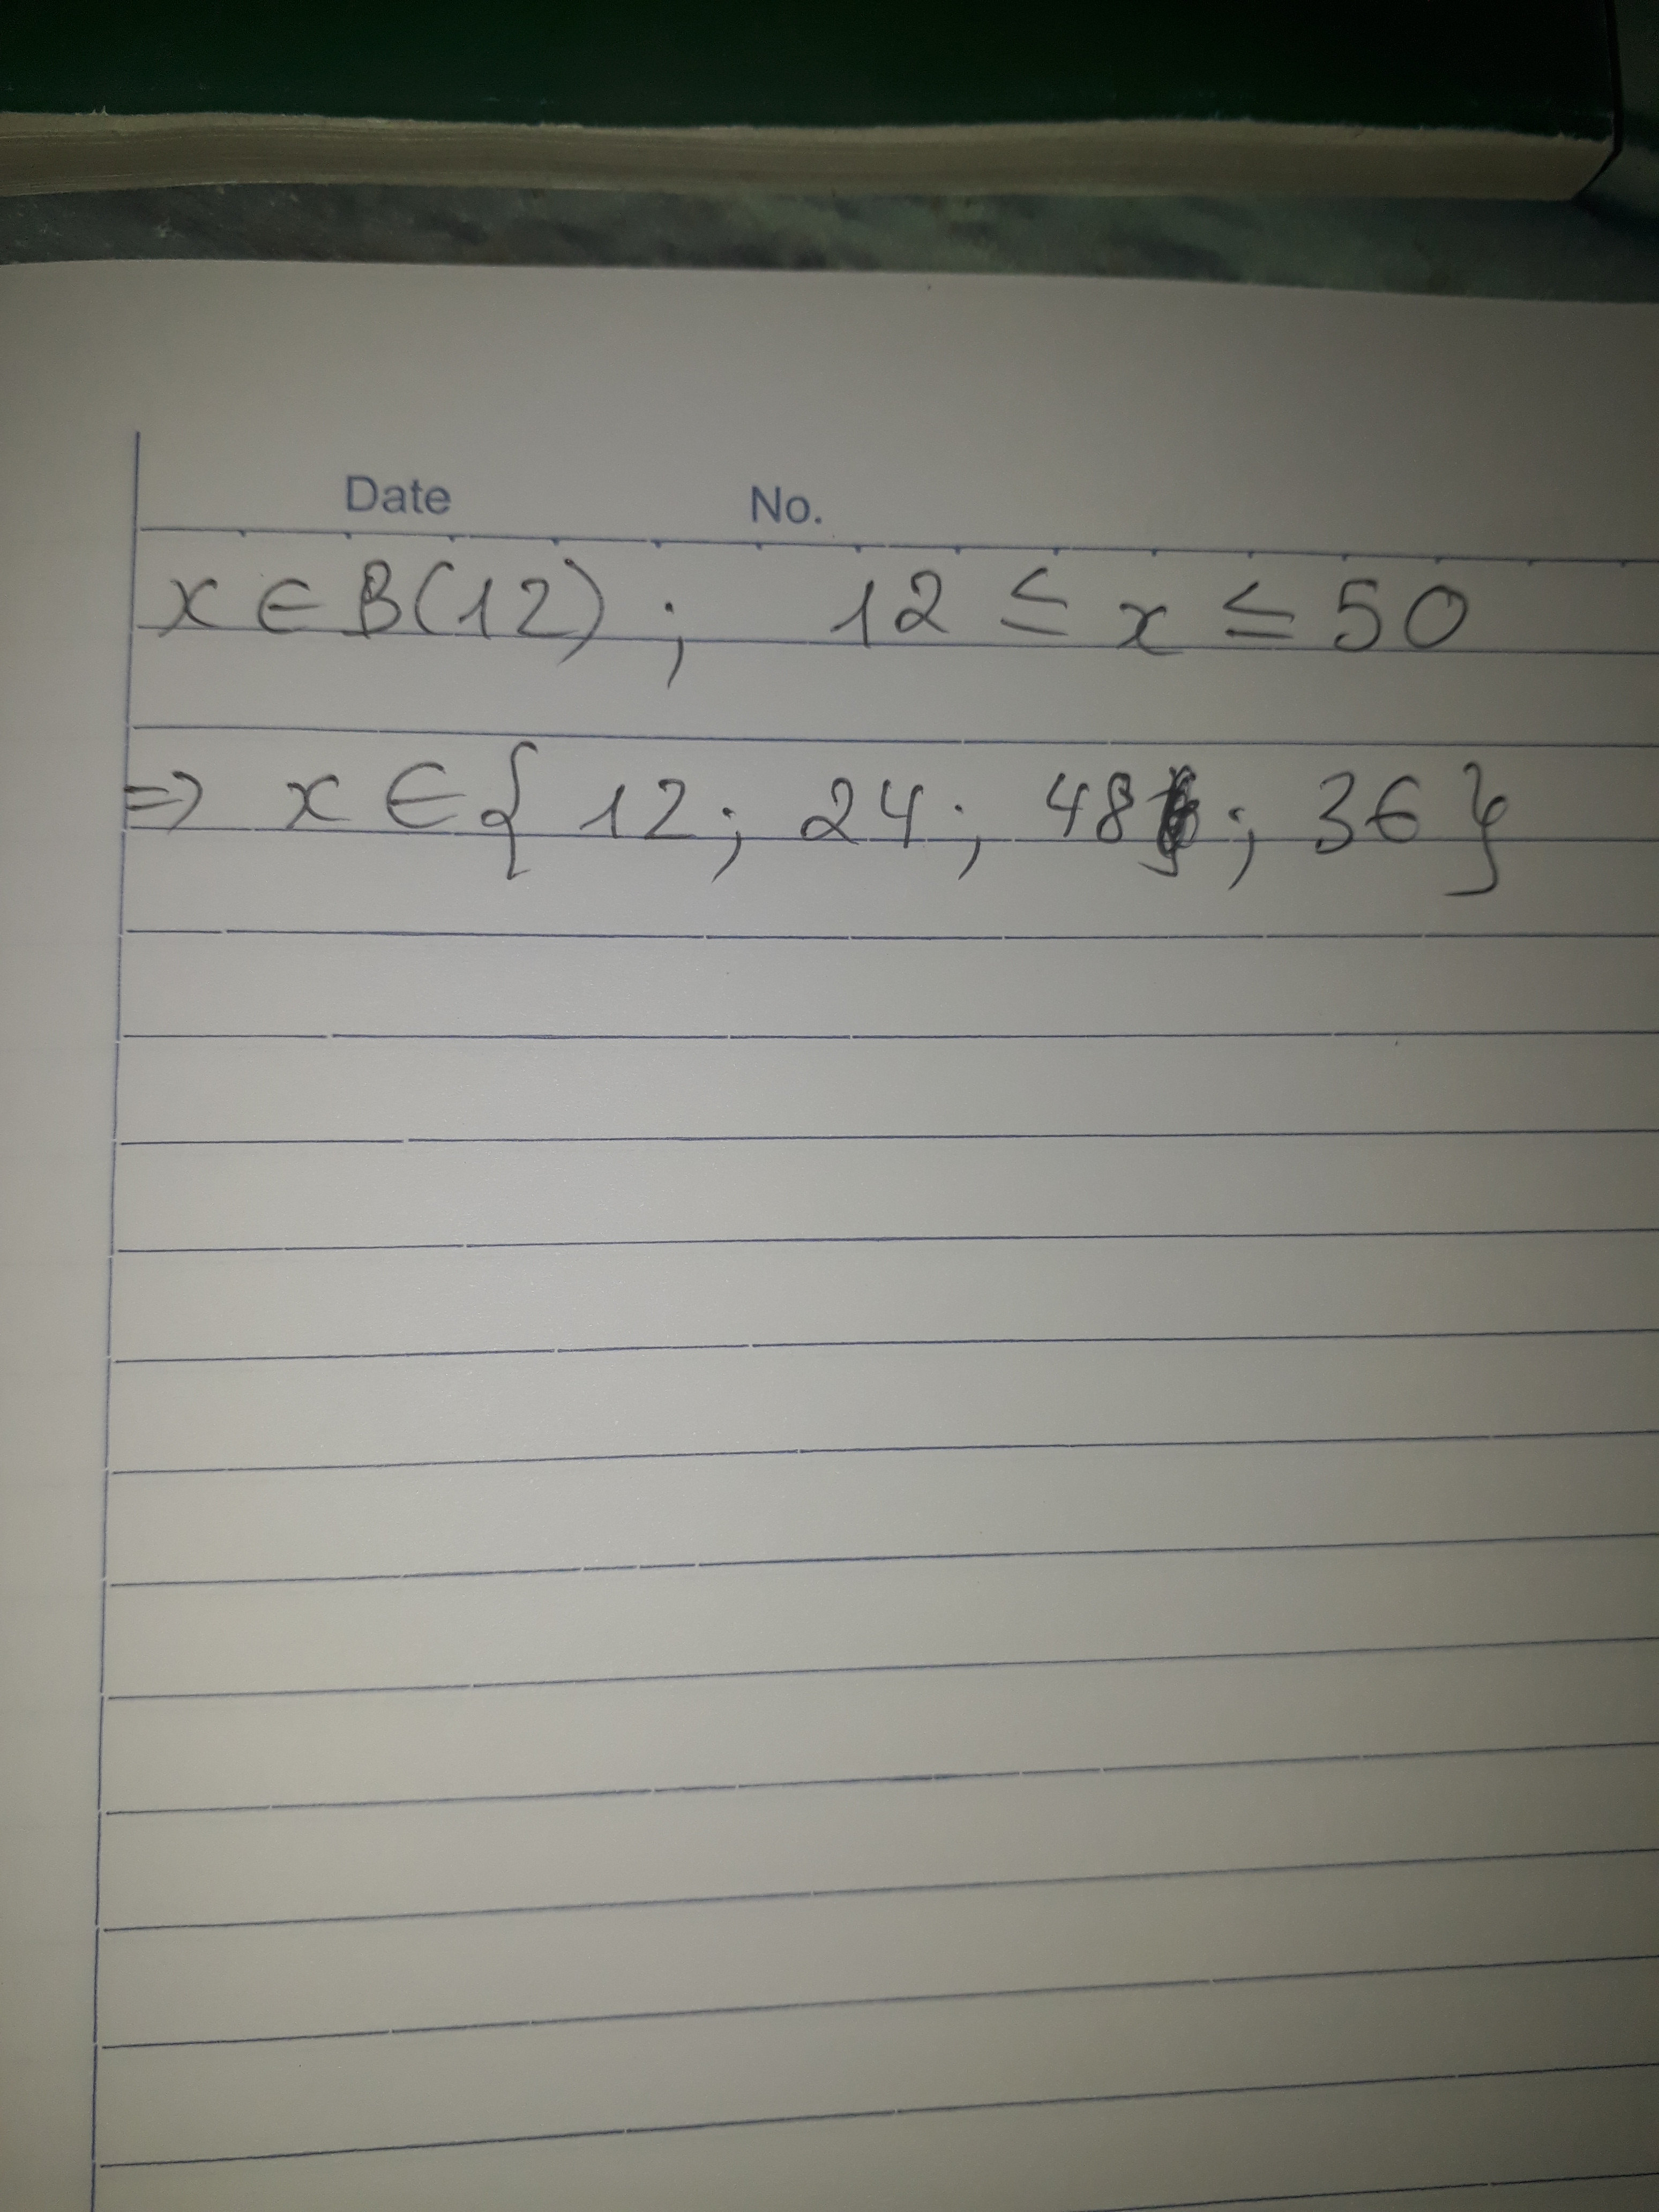 Date No.
x ∈ B(12) ; 12 ≤ x ≤ 50
=> x ∈ { 12 ; 24 ; 48 ; 36 }